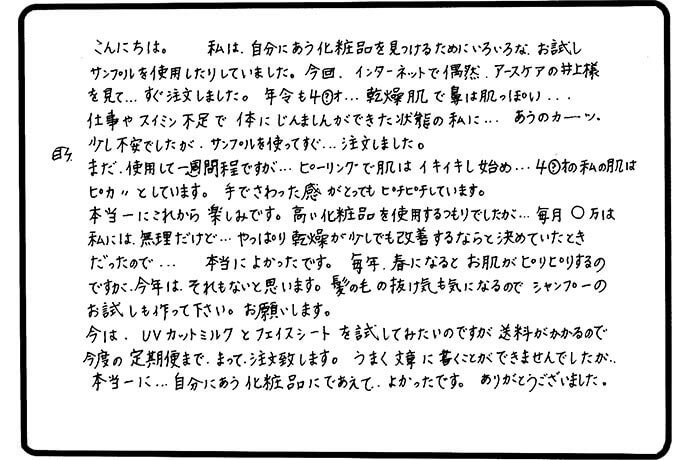 こんにちは。 私は、自分にあう化粧品を見つけるためにいろいろな、お試し
サンプルを使用したりしていました。今回、インターネットで偶然、アースケアの井上様
を見て…すぐ注文しました。年令も4○才…乾燥肌で鼻は肌っぽい...
仕事やスイミン不足で体にじんましんができた状態の私に…あうのカーッ、
少し不安でしたが、サンプルを使ってすぐ…注文しました。
まだ、使用して一週間程ですが…ピーリングで肌はイキイキし始め…4○才の私の肌は
ピカ〃としています。手でさわった感がとってもピチピチしています。
本当ーにこれから楽しみです。高い化粧品を使用するつもりでしたが…毎月〇万は
私には、無理だけど…やっぱり乾燥が少しでも改善するならと決めていたとき
だったので… 本当によかったです。毎年、春になるとお肌がピリピリするの
ですが、今年は、それもないと思います。髪の毛の抜け気も気になるのでシャンプーの
お試しも作って下さい。お願いします。
今は、UVカットミルクとフェイスシートを試してみたいのですが送料がかかるので
今度の定期便まで、まって、注文致します。うまく文章に書くことができませんでしたが、
本当ーに…自分にあう化粧品にであえて、よかったです。ありがとうございました。